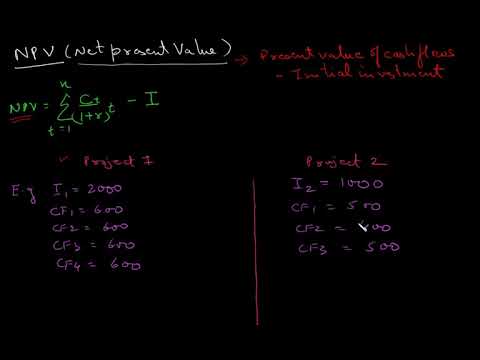 NPV (Net present Value) → Present value of cashflows
- Initial investment
NPV = n ∑ t=1 Ct/(1+r)^t - I
✓ Project 1
E.g I1 = 2000
CF1 = 600
CF2 = 600
CF3 = 600
CF4 = 600
Project 2
I2 = 1000
CF1 = 500
CF2 = 00
CF3 = 500